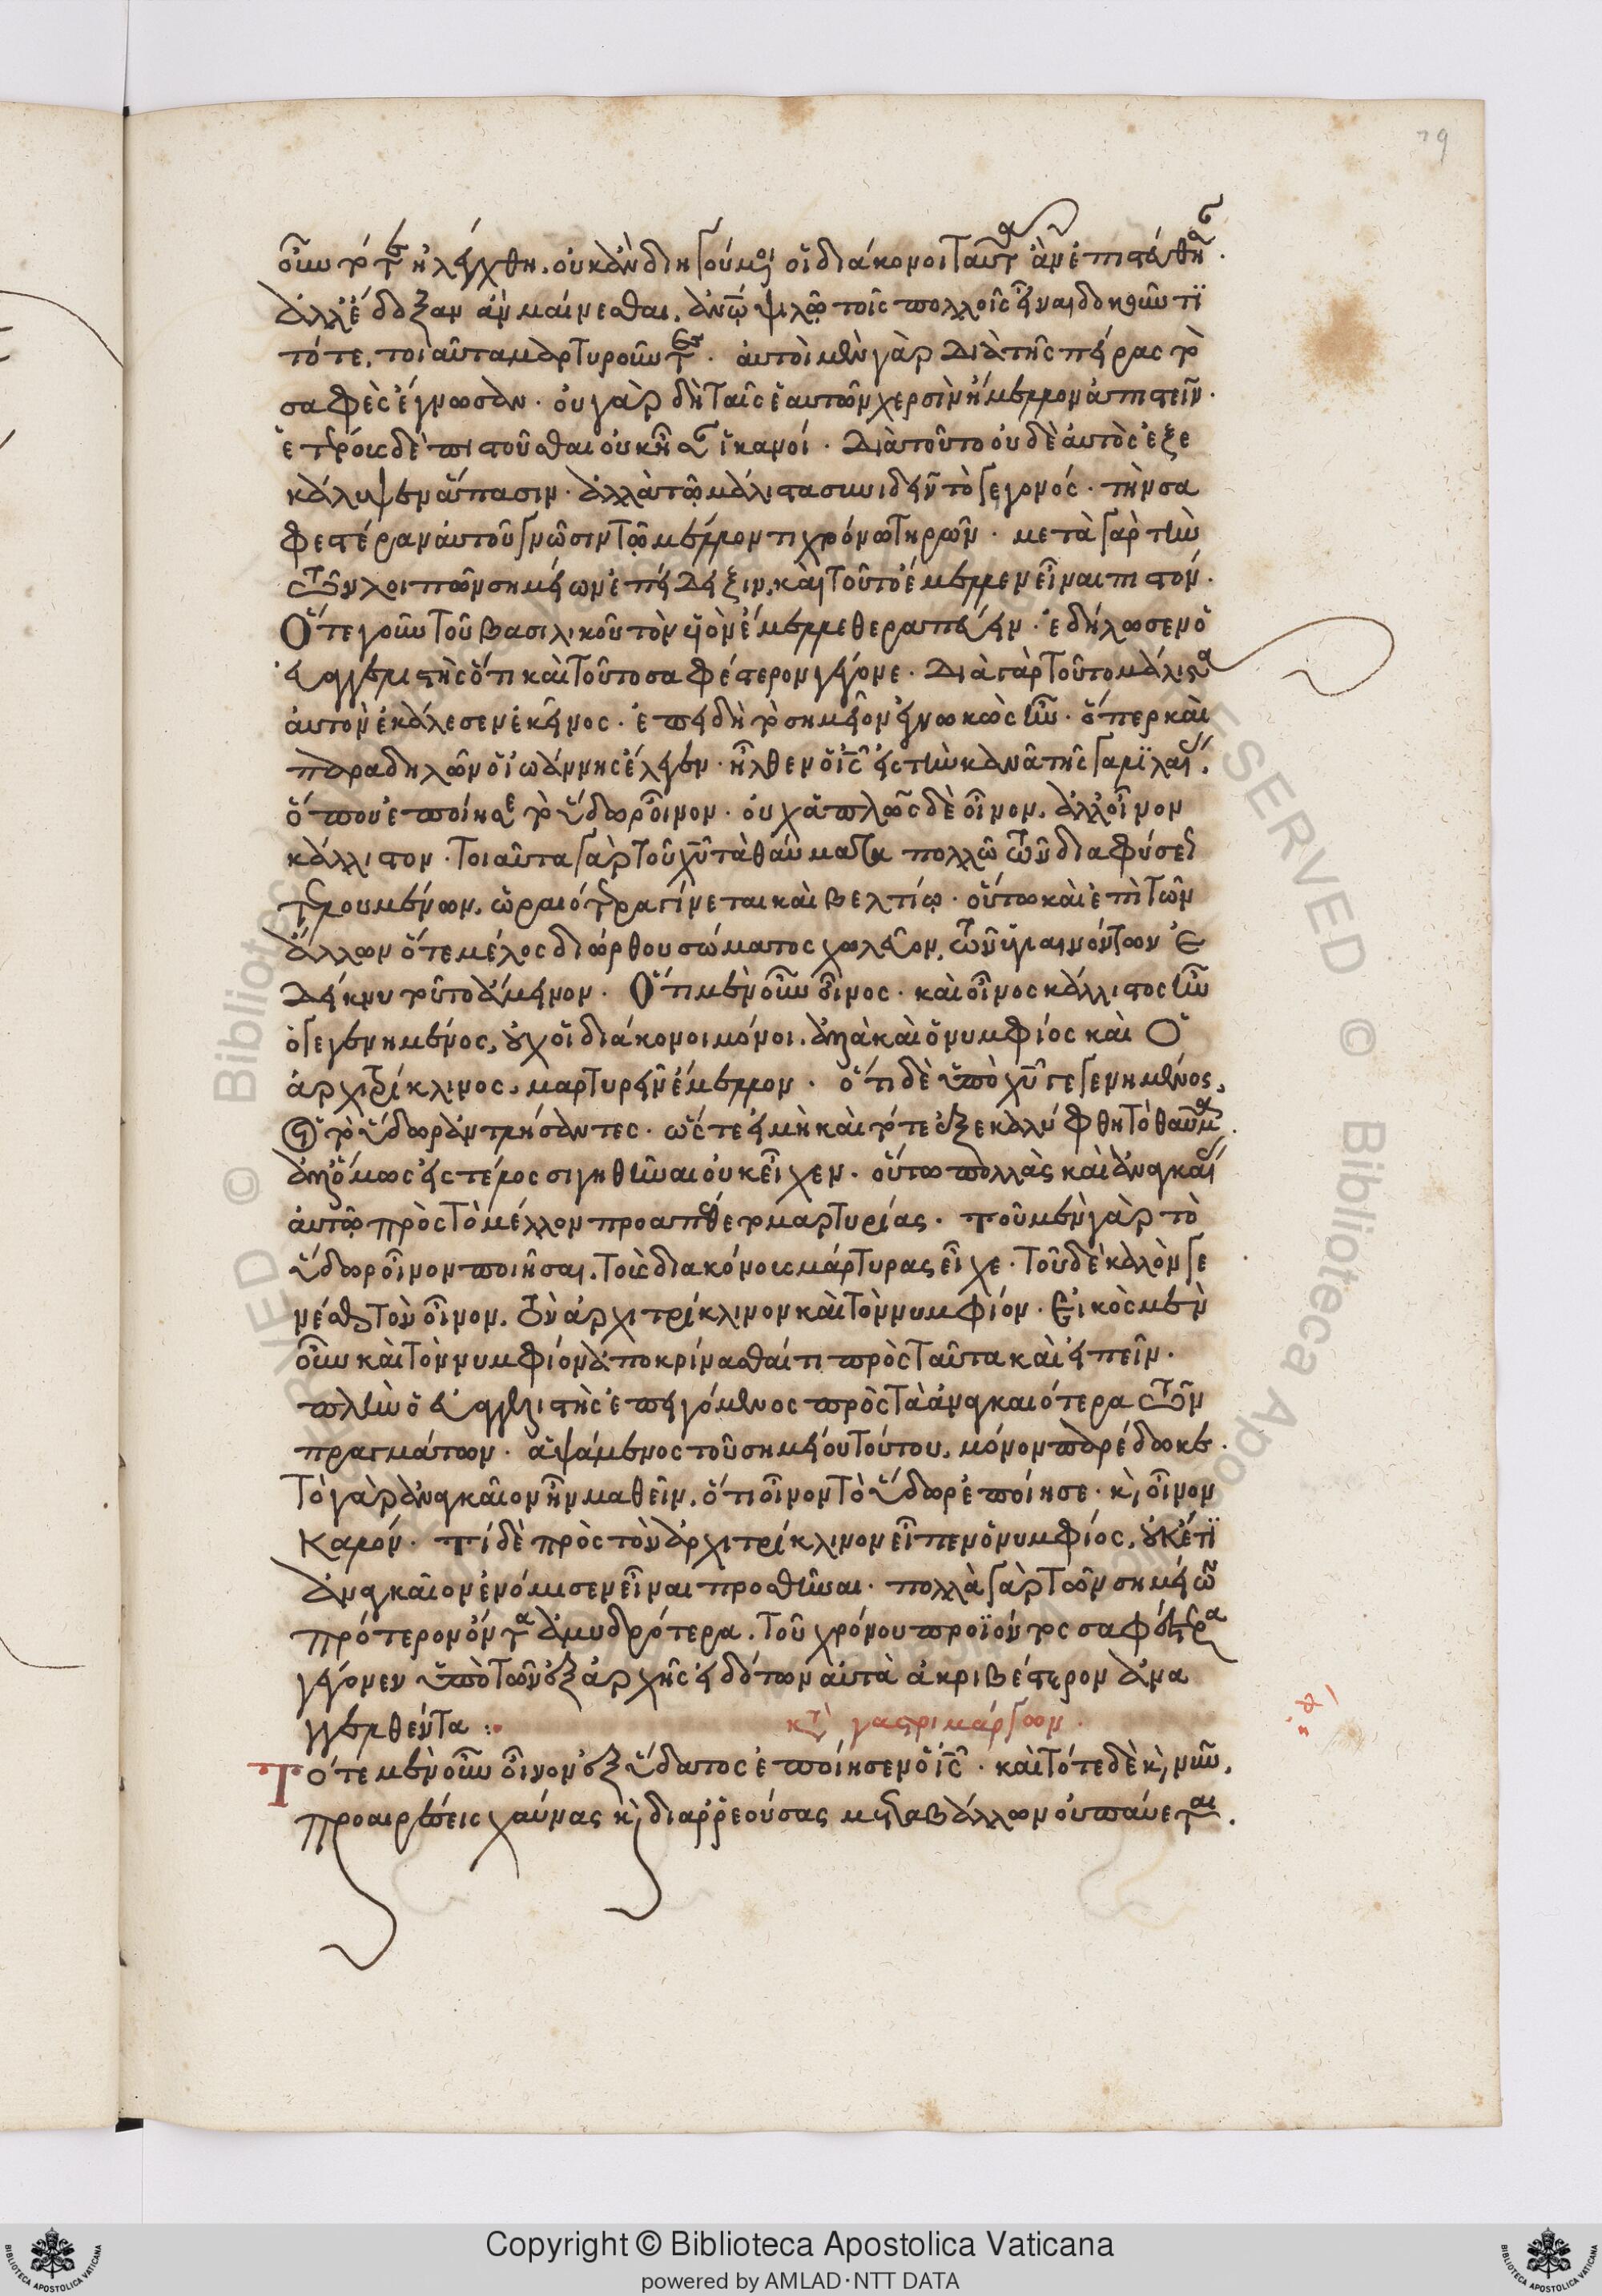 79
οὖν τότε ἠλέγχθη. οὐκ ἂν διηγούμενοι οἱ διάκονοι ταῦτα ἂν ἐπιστεύθησαν.
ἀλλ' ἔδοξαν ἂν μαίνεσθαι, ἀνθρώπῳ ψιλῷ τοῖς πολλοῖς εἶναι δοκοῦντι
τότε, τοιαῦτα μαρτυροῦντες. αὐτοὶ μὲν γὰρ διὰ τῆς πείρας τὸ
σαφὲς ἔγνωσαν. οὐ γὰρ δὴ ταῖς ἑαυτῶν χερσὶν ἤμελλον ἀπιστεῖν.
ἑτέροις δὲ πιστοῦσθαι οὐκ ἦσαν ἱκανοί. διὰ τοῦτο οὐδὲ αὐτὸς ἐξε
κάλυψεν ἅπασιν. ἀλλὰ τῷ μάλιστα συνιδεῖν τὸ γεγονός. τὴν σα
φεστέραν αὐτοῦ γνῶσιν τῷ μέλλοντι χρόνῳ τηρῶν. μετὰ γὰρ τὴν
τῶν λοιπῶν σημείων ἐπίδειξιν, καὶ τοῦτο ἔμελλεν εἶναι πιστόν.
Ὅτε γοῦν τοῦ βασιλικοῦ τὸν υἱὸν ἔμελλε θεραπεύειν. ἐδήλωσεν ὁ
εὐαγγελιστὴς ὅτι καὶ τοῦτο σαφέστερον γέγονε. διὰ γὰρ τοῦτο μάλιστα
αὐτὸν ἐκάλεσεν ἐκεῖνος. ἐπειδὴ τὸ σημεῖον ἐγνωκὼς ἦν. ὅπερ καὶ
παραδηλῶν ὁ ἰωάννης ἔλεγεν. ἦλθεν ὁ ἰς εἰς τὴν κανᾶ τῆς γαλιλαίας,
ὅπου ἐποίησε τὸ ὕδωρ οἶνον. οὐχ ἁπλῶς δὲ οἶνον, ἀλλ' οἶνον
κάλλιστον. τοιαῦτα γὰρ τοῦ χυ τὰ θαύματα πολλῷ τῶν διὰ φύσεως
τελουμένων, ὡραιότερα γίνεται καὶ βελτίω. οὕτω καὶ ἐπὶ τῶν
ἄλλων ὅτε μέλος διώρθου σώματος χωλεῦον, τῶν ὑγιαινόντων ἐ
δείκνυ τοῦτο ἄμεινον. Ὅτι μὲν οὖν οἶνος. καὶ οἶνος κάλλιστος ἦν
ὁ γεγενημένος, οὐχ οἱ διάκονοι μόνοι. ἀλλὰ καὶ ὁ νυμφίος καὶ ὁ
ἀρχιτρίκλινος, μαρτυρεῖν ἔμελλον. ὅτι δὲ ὑπὸ χυ γεγενημένος,
οἱ τὸ ὕδωρ ἀντλήσαντες. ὥστε εἰ μὴ καὶ τότε ἐξεκαλύφθη τὸ θαῦμα.
ἀλλ' ὅμως εἰς τέλος σιγηθῆναι οὐκ εἶχεν. οὕτω πολλὰς καὶ ἀναγκαίας
αὐτῷ πρὸς τὸ μέλλον προαπέθετο μαρτυρίας. τοῦ μὲν γὰρ τὸ
ὕδωρ οἶνον ποιῆσαι, τοὺς διακόνους μάρτυρας εἶχε. τοῦ δὲ καλὸν γε
νέσθαι τὸν οἶνον, τὸν ἀρχιτρίκλινον καὶ τὸν νυμφίον. Εἰκὸς μὲν
οὖν καὶ τὸν νυμφίον ἀποκρίνασθαί τι πρὸς ταῦτα καὶ εἰπεῖν.
πλὴν ὁ εὐαγγελιστὴς ἐπειγόμενος πρὸς τὰ ἀναγκαιότερα τῶν
πραγμάτων. ἁψάμενος τοῦ σημείου τούτου, μόνον παρέδωκε.
Τὸ γὰρ ἀναγκαῖον ἦν μαθεῖν, ὅτι οἶνον τὸ ὕδωρ ἐποίησε. κ οἶνον
καλόν. τί δὲ πρὸς τὸν ἀρχιτρίκλινον εἶπεν ὁ νυμφίος, οὐκέτι
ἀναγκαῖον ἐνόμισεν εἶναι προσθεῖναι. πολλὰ γὰρ τῶν σημείων
πρότερον ὄντα ἀμυδρότερα. τοῦ χρόνου προϊόντος σαφέστερα
γέγονεν ὑπὸ τῶν ἐξ ἀρχῆς εἰδότων αὐτὰ ἀκριβέστερον ἀνα
γγελθέντα :·
κτ γαστριμάργων.
Τότε μὲν οὖν οἶνον ἐξ ὕδατος ἐποίησεν ὁ ἰς. καὶ τότε δὲ κ νῦν,
προαιρέσεις χαύνας κ διαρρεούσας μεταβάλλων οὐ παύεται.